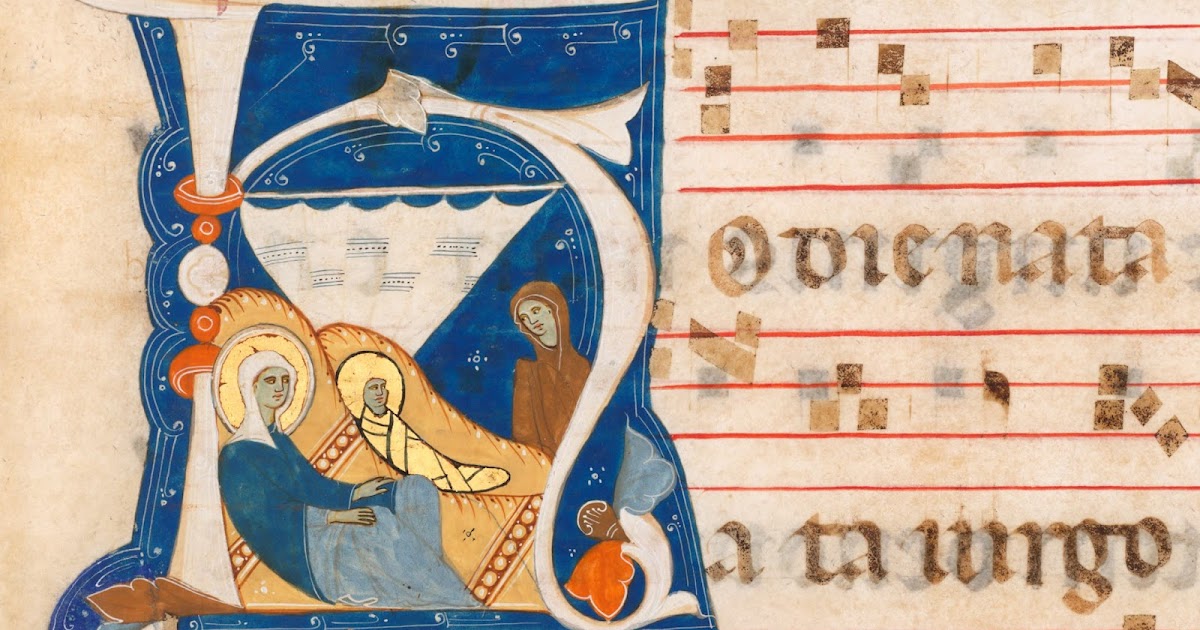 HOdie nata
a ta uirgo